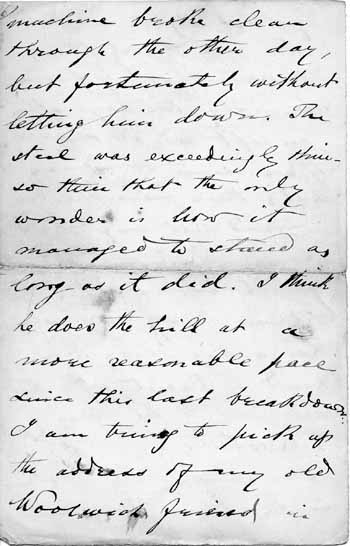 machine broke clean
through the other day,
but fortunately without
letting him down. The
steel was exceedingly thin-
so thin that the only
wonder is how it
managed to stand as
long as it did. I think
he does the hill at a
more reasonable pace
since this last breakdown.
I am trying to pick up
the address of my old
Woolwich friend in